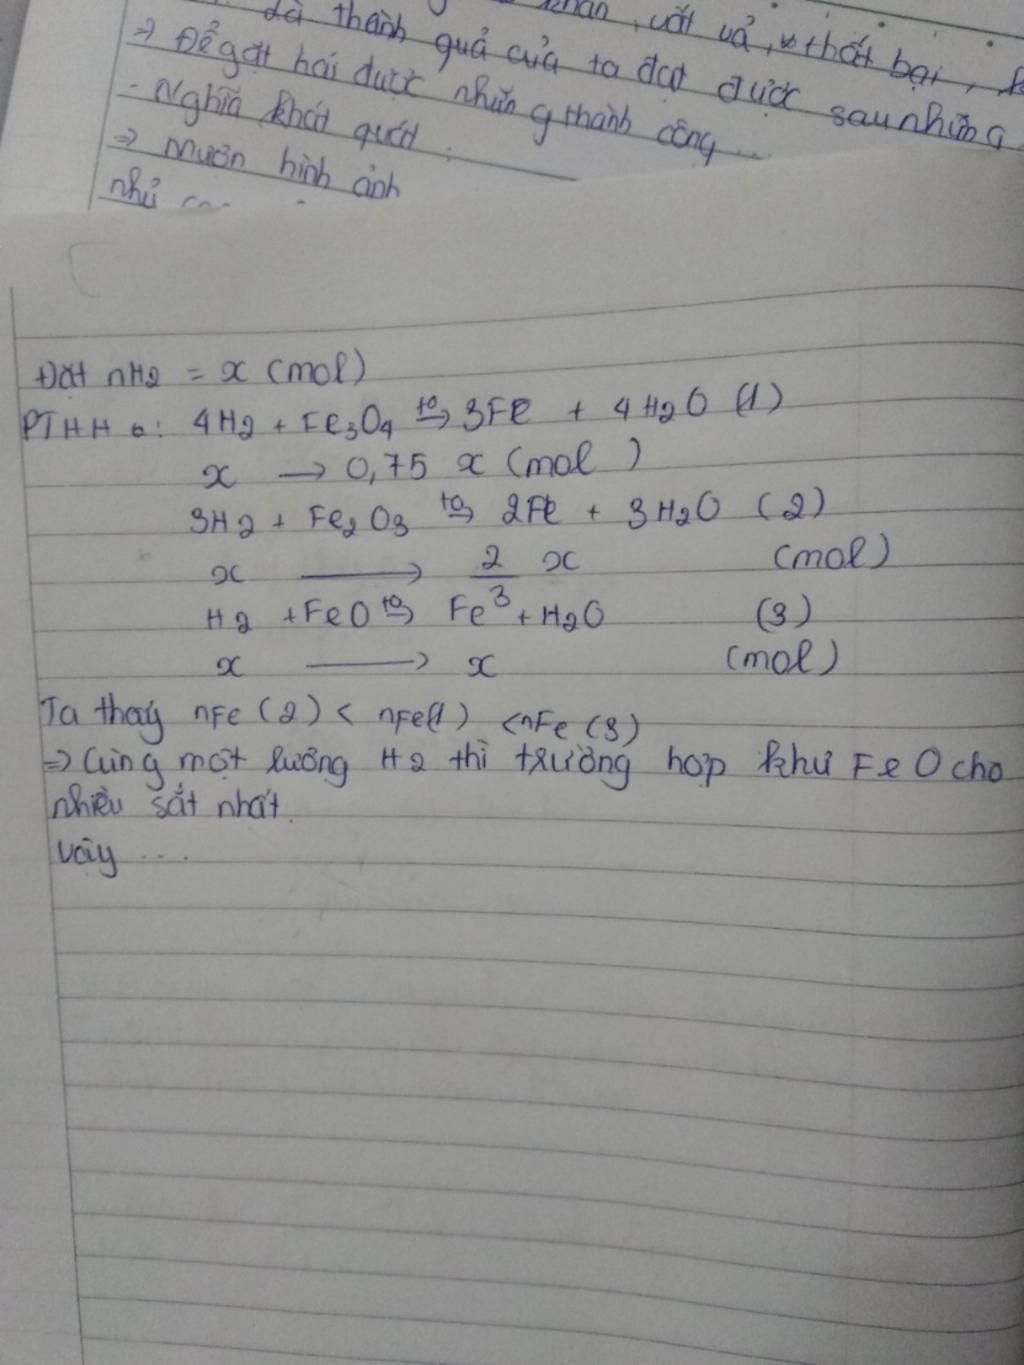 là thành quả của ta đạt được sau những
khăn, vất vả, thất bại,
⇒ Để gặt hái được những thành công...
- Nghĩa khát quát:
⇒ Mượn hình ảnh
như
Đặt nH2 = x (mol)
PTHH: 4H2 + Fe3O4 t0→ 3Fe + 4H2O (1)
x → 0,75 x (mol)
3H2 + Fe2O3 t0→ 2Fe + 3H2O (2)
x → 2/3 x (mol)
H2 + FeO t0→ Fe + H2O (3)
x → x (mol)
Ta thấy nFe (2) < nFe(1) < nFe (3)
⇒ Cùng một lường H2 thì trường hợp khử FeO cho
nhiều sắt nhất.
Vậy ....